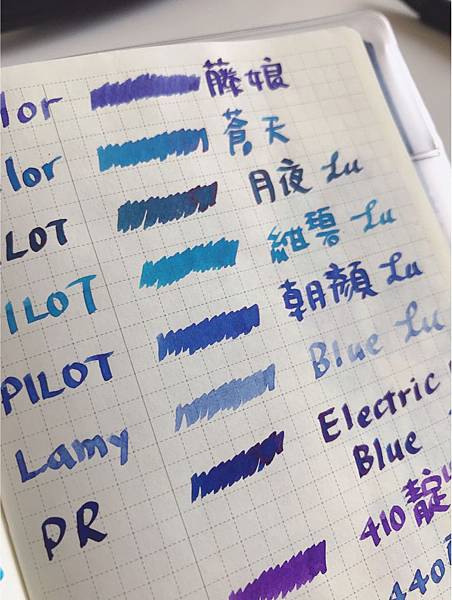 lor 藤娘
lor 蒼天
LOT 月夜 Lu
ILOT 紺碧 Lu
PILOT 朝顏 Lu
Lamy Blue Lu
PR Electric
Blue
410 靛
440